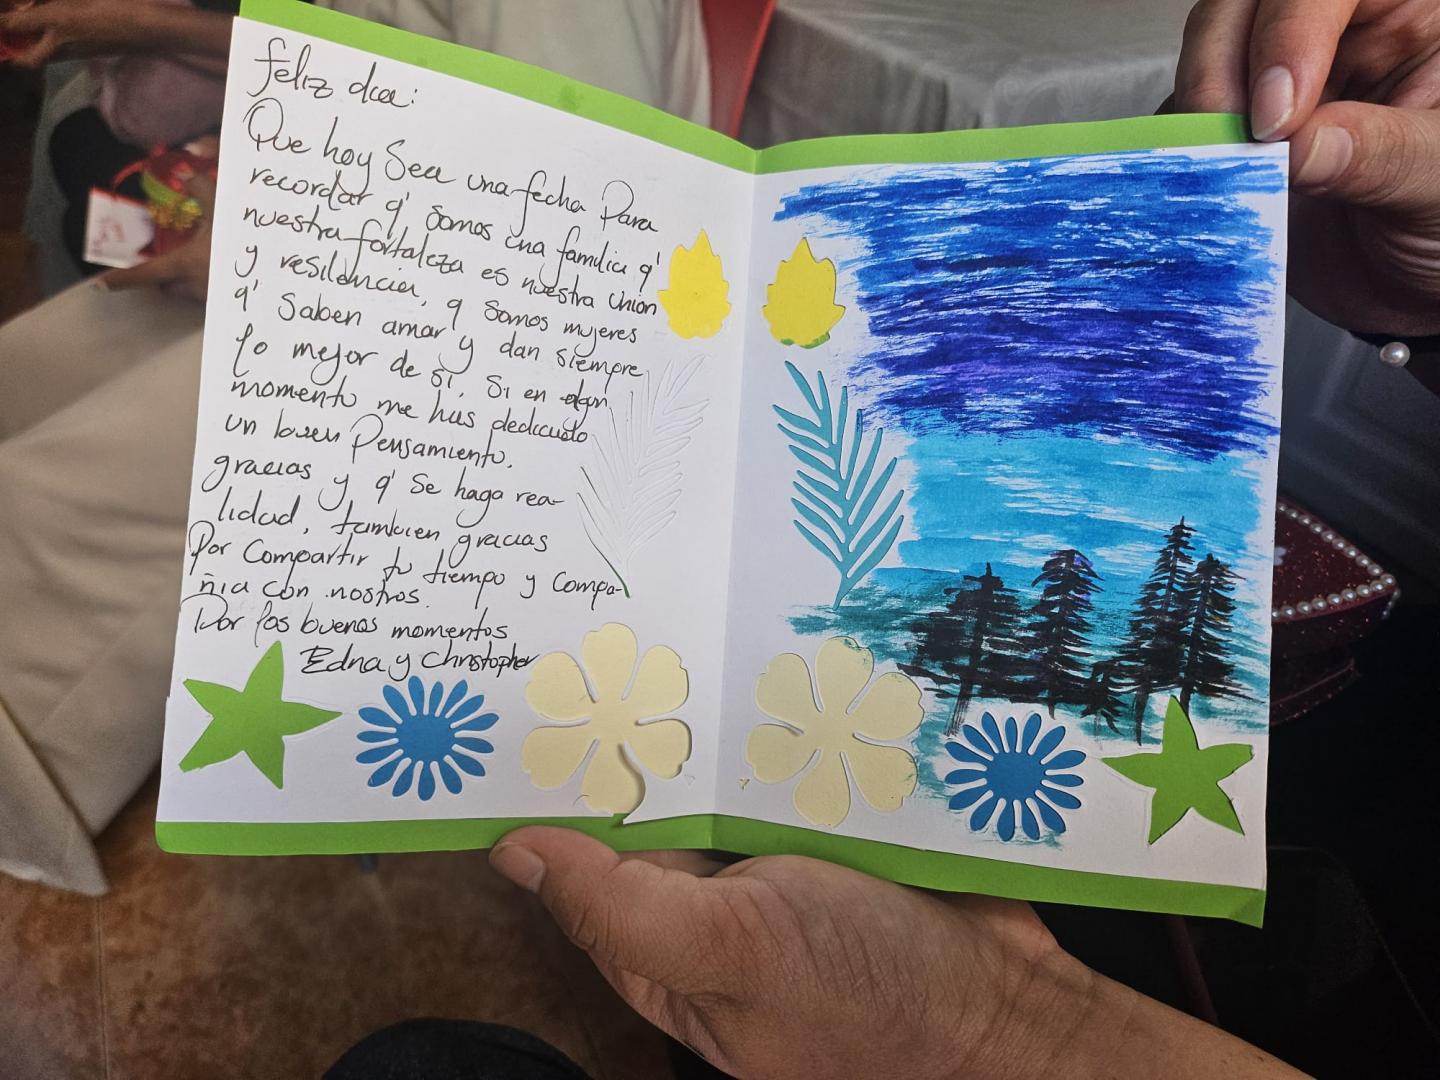 feliz día:
Que hoy Sea una fecha Para
recordar q' Somos una familia q'
nuestra fortaleza es nuestra unión
y resilencia, q Somos mujeres
q' Saben amar y dan siempre
lo mejor de sí. Si en algún
momento me has dedicado
un buen Pensamiento,
gracias y q' Se haga rea-
lidad, también gracias
Por Compartir tu tiempo y Compa-
ñia con nostros.
Por los buenos momentos
Edna y Christopher